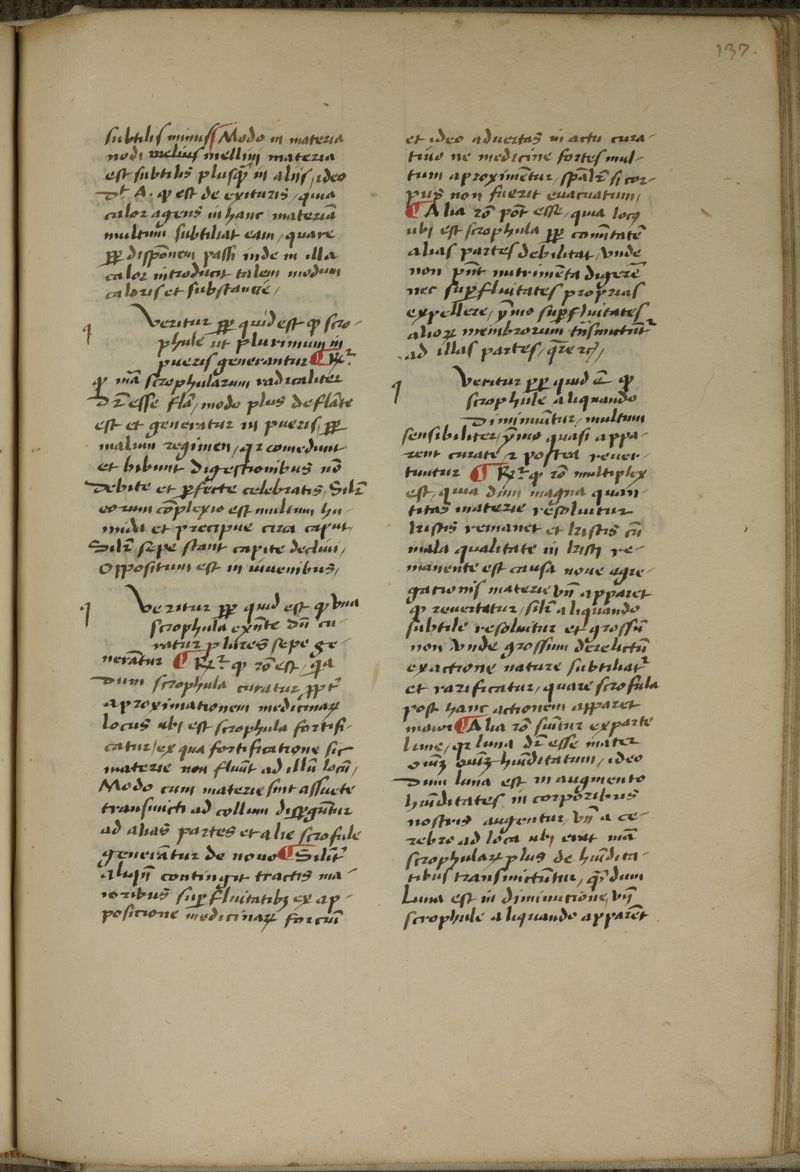 137.
subtilis minus Modo in materia
nodi melius mellini materia
est subtilis plusq̃ in aliis, ideo
Dt̃ A. ꝙ est de exituris, quia
calor agens in hanc materiã
multum subtiliat eam, quare
ꝓꝑ disponem passi inde in illa
calor introducit talem modum
caloris et substantie,
q Veritur ꝓꝑ quid est ꝙ scro-
phule ut plurimum in
pueris generantur ¶ Rꝛ̃
ꝙ mã scrophularum radicaliter
Dꝛ̃ esse fla̅, modo plus de fla̅te
est et generatur in pueris, ꝓꝑ
malum regimen, qꝛ comedunt
et bibunt digestionibus nõ
debite et ꝑfecte celebratis, Silr̃
eorum co̅plexio est multum hu-
mida et precipue circa caput,
Silr̃ sepe stant capite declivi,
Oppositum est in iuuenibus,
q Veritur ꝓꝑ quid est ꝙ una
scrophula exn̅te du̅ cu-
ratur plures sepe ge-
nera̅tur ¶ Rꝛ̃ ꝙ ro̅ est, qã
Dum scrophula curatur ꝓpt̃
aproximationem medicinaꝝ
locus ubi est scrophula fortifi-
catur, ex qua fortificatione sic
materie non fluu̅t ad illu̅ locu̅,
Modo cum materie sint assuete
transmicti ad collum dispergu̅tur
ad alias partes et alie scrofule
genera̅tur de nouo ¶ Silit̃
aliqñ contingit tractis ma-
ioribus suꝑfluitatibꝫ ex ap-
positione medicinaꝝ forciu̅
et ideo aduertas in actu cura-
tiuo ne medicine fortes mul-
tum aproxime̅tur, spãlr̃ si cor-
pus non fuerit euacuatum,
¶ Alia ro̅ po̅t esse, quia locꝯ
ubi est scrophula ꝓꝑ co̅mitatẽ
alias partes debilitat, unde
non pñt nutrime̅ta digerẽ
nec suꝑfluitates proprias
expellere, ymo suꝑfluitates
alioꝝ membrorum tra̅smictu̅tꝛ̃
ad illas partes, qr̃e
q Veritur ꝓꝑ quid ẽ ꝙ
scrophule aliquando
Diminua̅tur, multum
sensibiliter, ymo quasi appa-
rent curate, et postea reuer-
tuntur ¶ Rꝛ̃ ꝙ ro̅ multiplex
est, quia dum magna quan-
titas materie resoluitur
tristis remanet et tristis cu̅
mala qualitate in tristi re-
manente est causa noue agre-
gationis materie vñ apparet
ꝙ reuertatur, silr̃ aliquando
subtile resoluitur et grossu̅
non unde grossum derelictu̅
ex actione nature subtiliatꝛ̃
et rarificatur, quare scrofula
post hanc actionem apparet
maior ¶ Alia ro̅ sumitur ex parte
lune, qꝛ luna dꝛ̃ esse mater
oiu̅ꝫ hu̅ditatum, ideo
Dum luna est in augmento
hu̅ditates in corporibus
nostris augentur, vñ a ce-
rebro ad loca ubi erit mã
scrophulaꝝ plus de hu̅dita-
tibus transmictu̅tur, qñ dum
Luna est in diminutione, vñ
scrophule aliquando appare̅t